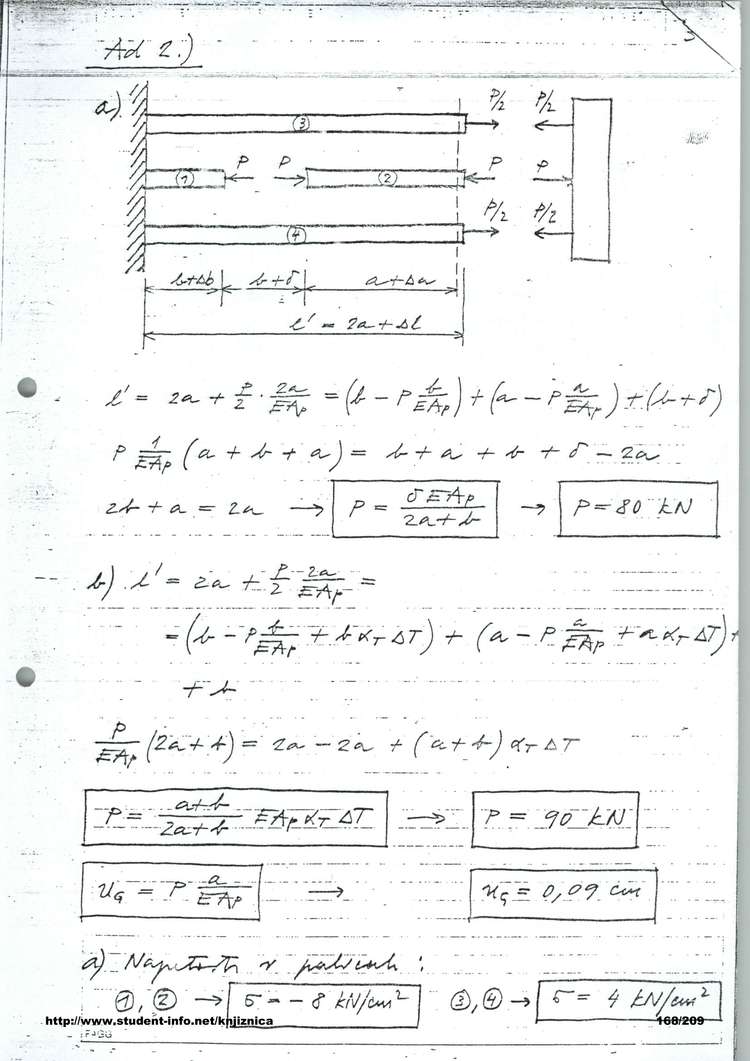 3
Ad 2.)
a).
P/2 P/2
③
P P P P
① ②
P/2 P/2
④
b+Δb b+δ a+Δa
l' = 2a+Δl
l' = 2a + P/2 · 2a/EAp = (b − P b/EAp) + (a − P a/EAp) + (b+δ)
P 1/EAp (a + b + a) = b + a + b + δ − 2a
2b + a = 2a → P = δEAp/2a+b → P = 80 kN
b) l' = 2a + P/2 2a/EAp =
= (b − P b/EAp + b αT ΔT) + (a − P a/EAp + a αT ΔT) +
+ b
P/EAp (2a + b) = 2a − 2a + (a + b) αT ΔT
P = a+b/2a+b EAp αT ΔT → P = 90 kN
uG = P a/EAp → uG = 0,09 cm
a) Napetosti v palicah :
①, ② → σ = − 8 kN/cm² ③, ④ → σ = 4 kN/cm²
http://www.student-info.net/knjiznica 168/209